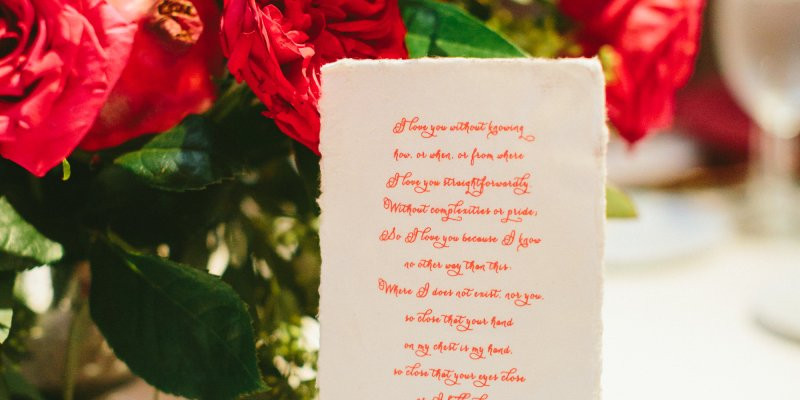 I love you without knowing
how, or when, or from where
I love you straightforwardly
Without complexities or pride;
So I love you because I know
no other way than this:
Where I does not exist, nor you,
so close that your hand
on my chest is my hand,
so close that your eyes close